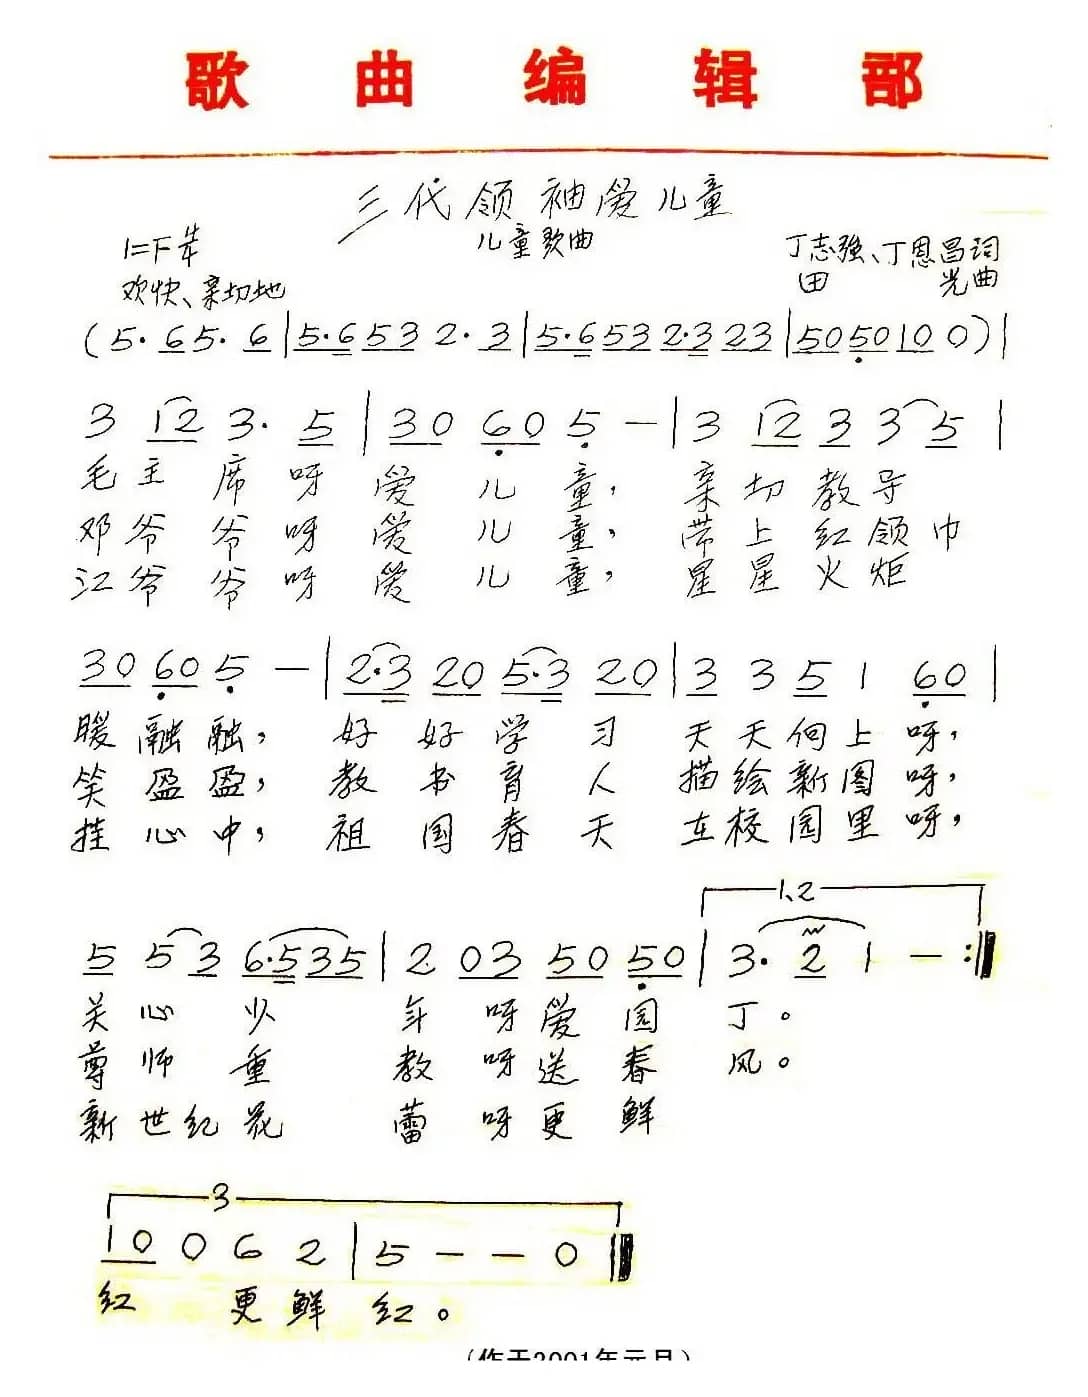 歌曲编辑部
三代领袖爱儿童
儿童歌曲
1=F 4/4
丁志强、丁恩昌词
欢快、亲切地
田光曲
(5·65·6|5·653 2·3|5·653 2·3 23|5050100)|
3 12 3·5|30 60 5 —|3 12 3 3 5|
毛主席呀爱儿童,亲切教导
邓爷爷呀爱儿童,带上红领巾
江爷爷呀爱儿童,星星火炬
30 60 5 —|2·3 20 5·3 20|3 3 5 1 60|
暖融融,好好学习天天向上呀,
笑盈盈,教书育人描绘新图呀,
挂心中,祖国春天在校园里呀,
1、2
5 5 3 6·535|2 03 50 50|3·2 1 —:||
关心少年呀爱园丁。
尊师重教呀送春风。
新世纪花蕾呀更鲜
3
10 0 6 2|5 — — 0||
红更鲜红。
(作于2001年元月)